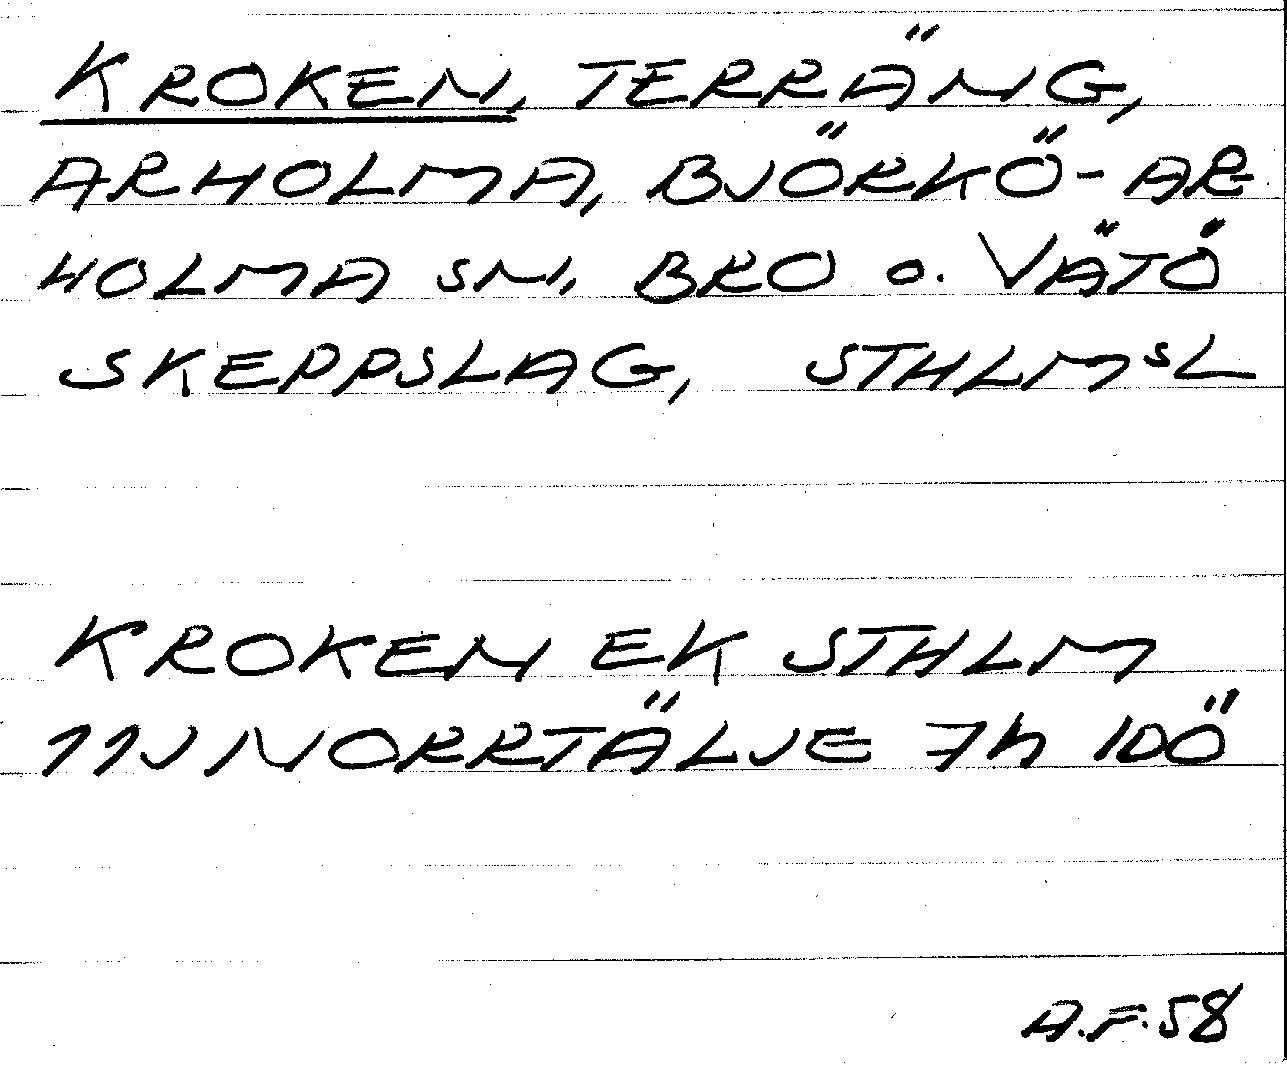 KROKEN, TERRÄNG,
ARHOLMA, BJÖRKÖ-AR-
HOLMA SN, BRO o. VÄTÖ
SKEPPSLAG, STHLMSL
KROKEN EK STHLM
11J NORRTÄLJE 7h IDÖ
A.F.58